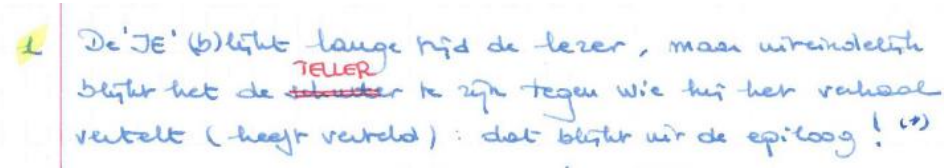 1 De 'JE' (b)lijkt lange tijd de lezer, maar uiteindelijk
TELLER
blijkt het de schutter te zijn tegen wie hij het verhaal
vertelt (heeft verteld): dat blijkt uit de epiloog! (*)